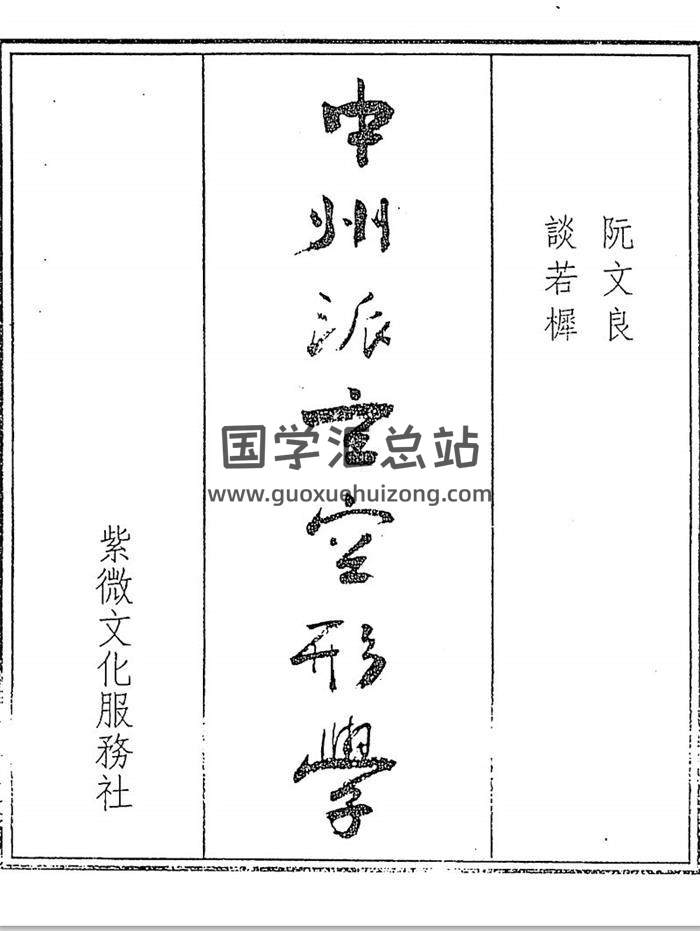 阮文良
談若樨
中州派玄空形學
紫微文化服務社
国学汇总站
www.guoxuehuizong.com